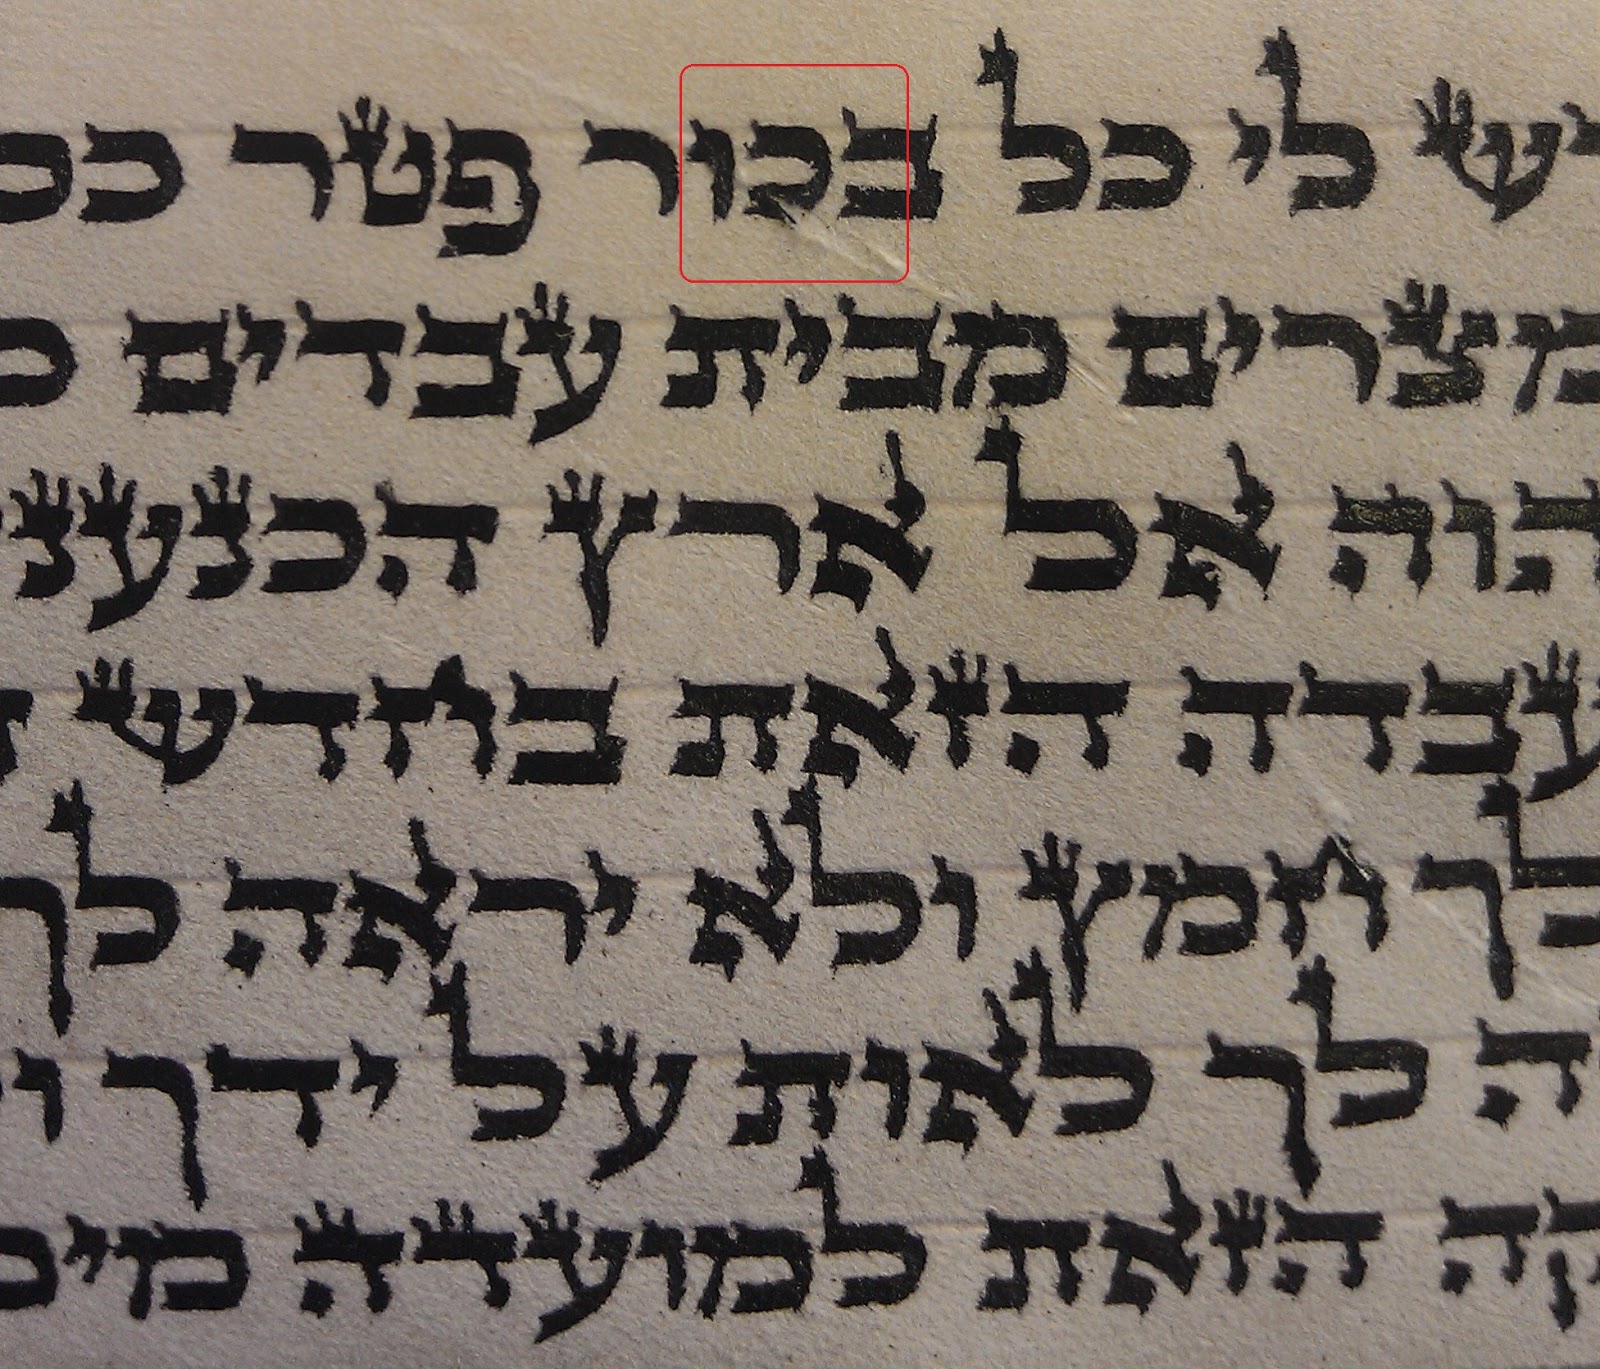 ש לי כל בכור פטר כל
מצרים מבית עבדים כ
הוה אל ארץ הכנענ
עבדה הזאת בחדש ה
לך חמץ ולא יראה לך
ה לך לאות על ידך ו
קה הזאת למועדה מימ